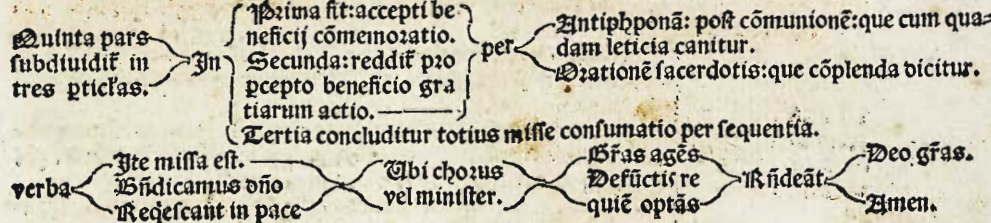 Quinta pars
subdiuidit᷑ in
tres ꝑticl̓as.
In
Prima fit: accepti be
neficij cõmemoratio.
Secunda: reddit᷑ pro
ꝑcepto beneficio gra
tiarum actio.
per
Antiphponã: post cõmunionẽ: que cum qua⸗
dam leticia canitur.
Orationẽ sacerdotis: que cõplenda dicitur.
Tertia concluditur totius misse consumatio per sequentia.
verba
Ite missa est.
Bñdicamus dño
Reqͥescant in pace
Ubi chorus
vel minister.
Gr̃as agẽs
Defũctis re
quiẽ optãs
Rñdeãt
Deo gr̃as.
Amen.